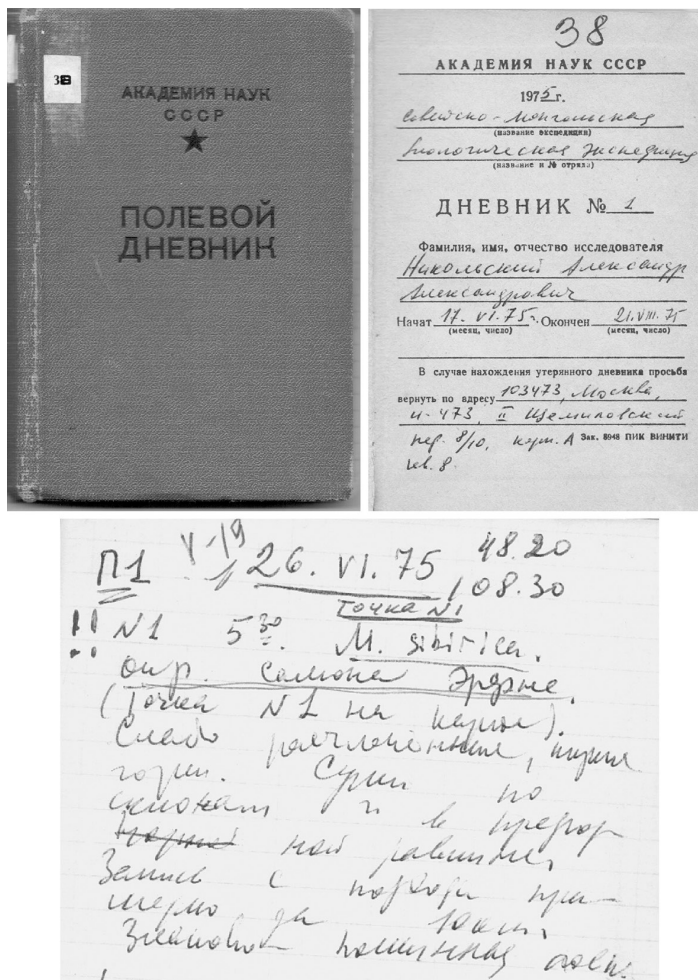 38
АКАДЕМИЯ НАУК
СССР
ПОЛЕВОЙ
ДНЕВНИК
38
АКАДЕМИЯ НАУК СССР
1975 г.
Советско-Монгольская
(название экспедиции)
биологическая экспедиция
(название и № отряда)
ДНЕВНИК № 1
Фамилия, имя, отчество исследователя
Никольский Александр
Александрович
Начат 17.VI.75г. Окончен 21.VIII.75
(месяц, число) (месяц, число)
В случае нахождения утерянного дневника просьба
вернуть по адресу 103473, Москва,
И-473, II Щемиловский
пер. 8/10, корп. А Зак. 8948 ПИК ВИНИТИ
кв. 8.
V-19 48.20
П1 26.VI.75 108.30
Точка N1
!! N1 5 30. M. sibirica.
окр. сомона Эрдэнэ.
(Точка N1 на карте).
Слабо расчлененные,
горы. Сурки по
склонам и в предгор
ной равнине.
Запись с подхода при-
мерно за 10 м.